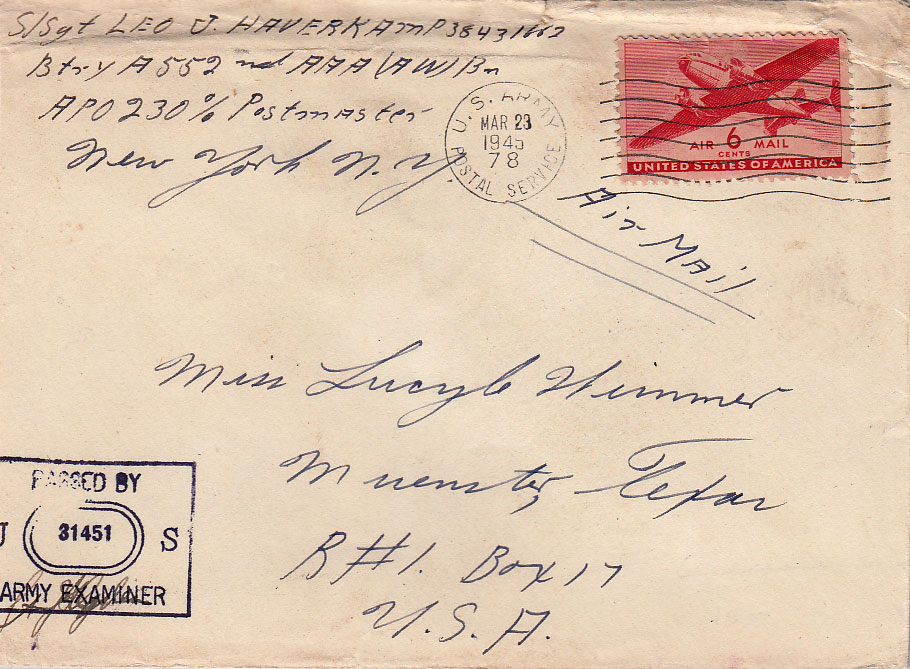 S/Sgt LEO J. HAVERKAMP 38431662
Btry A 552nd AAA (AW) Bn
APO 230 % Postmaster
New York N.Y.
U.S. ARMY
MAR 23
1945
78
POSTAL SERVICE
AIR 6 MAIL
CENTS
UNITED STATES OF AMERICA
Air Mail
Miss
Muenster, Texas
R#1. Box 17
U.S.A.
PASSED BY
U 31451 S
ARMY EXAMINER